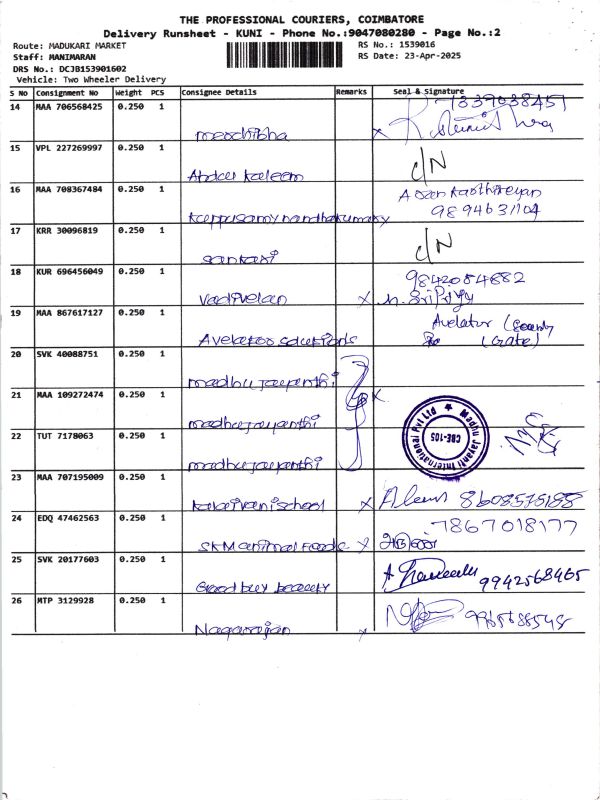 THE PROFESSIONAL COURIERS, COIMBATORE
Delivery Runsheet - KUNI - Phone No.:9047080280 - Page No.:2
Route: MADUKARI MARKET
Staff: MANIMARAN
DRS No.: DCJB153901602
Vehicle: Two Wheeler Delivery
RS No.: 1539016
RS Date: 23-Apr-2025
S No Consignment No Weight PCS Consignee Details Remarks Seal & Signature
14 MAA 706568425 0.250 1
15 VPL 227269997 0.250 1 Abdul Kaleem C/N
16 MAA 708367484 0.250 1 Kuppusamy nandhakumary
9894631104
17 KRR 30096819 0.250 1 C/N
18 KUR 696456049 0.250 1 Vadivelan x
9842084882
19 MAA 867617127 0.250 1 solutions
20 SVK 40088751 0.250 1 madhu jayanthi
21 MAA 109272474 0.250 1 madhu jayanthi x
22 TUT 7178063 0.250 1 madhu jayanthi
Madhu Jayanti International Pvt Ltd
CBE-105
23 MAA 707195009 0.250 1 kalaivani school x
24 EDQ 47462563 0.250 1 SKM animal Foods x
7867018177
25 SVK 20177603 0.250 1 Good buy beauty
9942568465
26 MTP 3129928 0.250 1 Nagarajan x